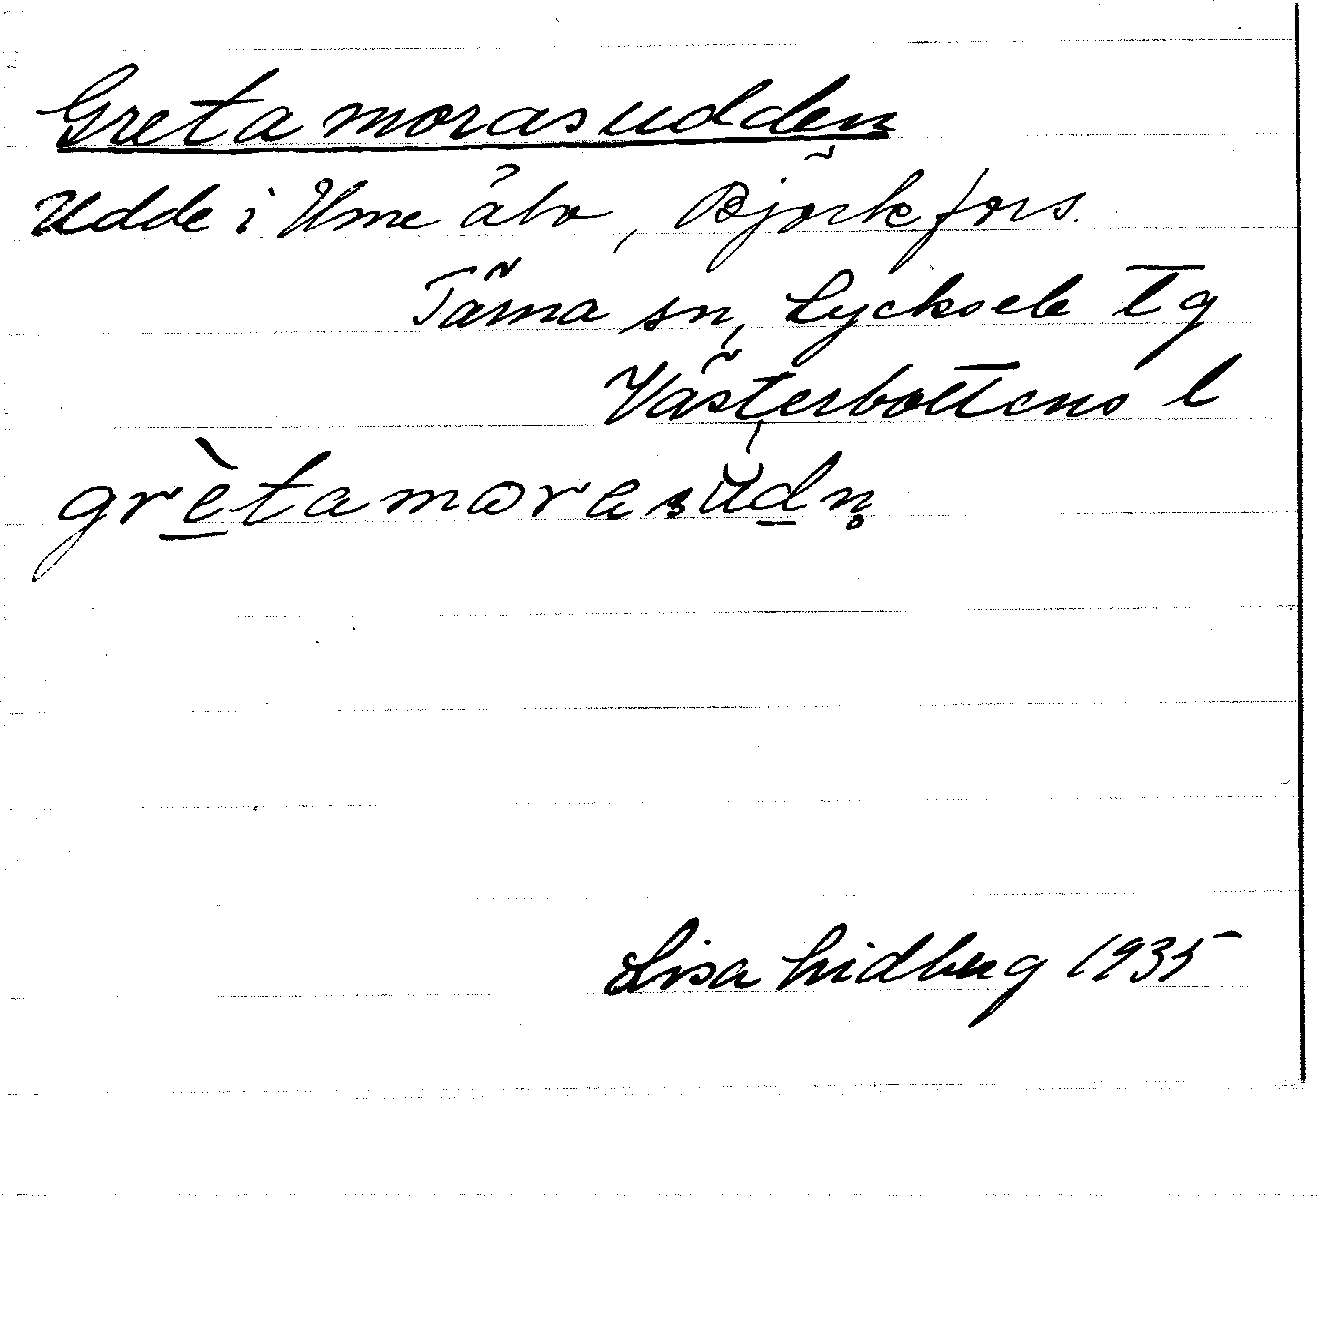 Gretamorasudden
Udde i Ume älv, Björkfors.
Tärna sn, Lycksele tg
Västerbottens l
grètamorasu̇dn̥
Lisa Lidberg 1935